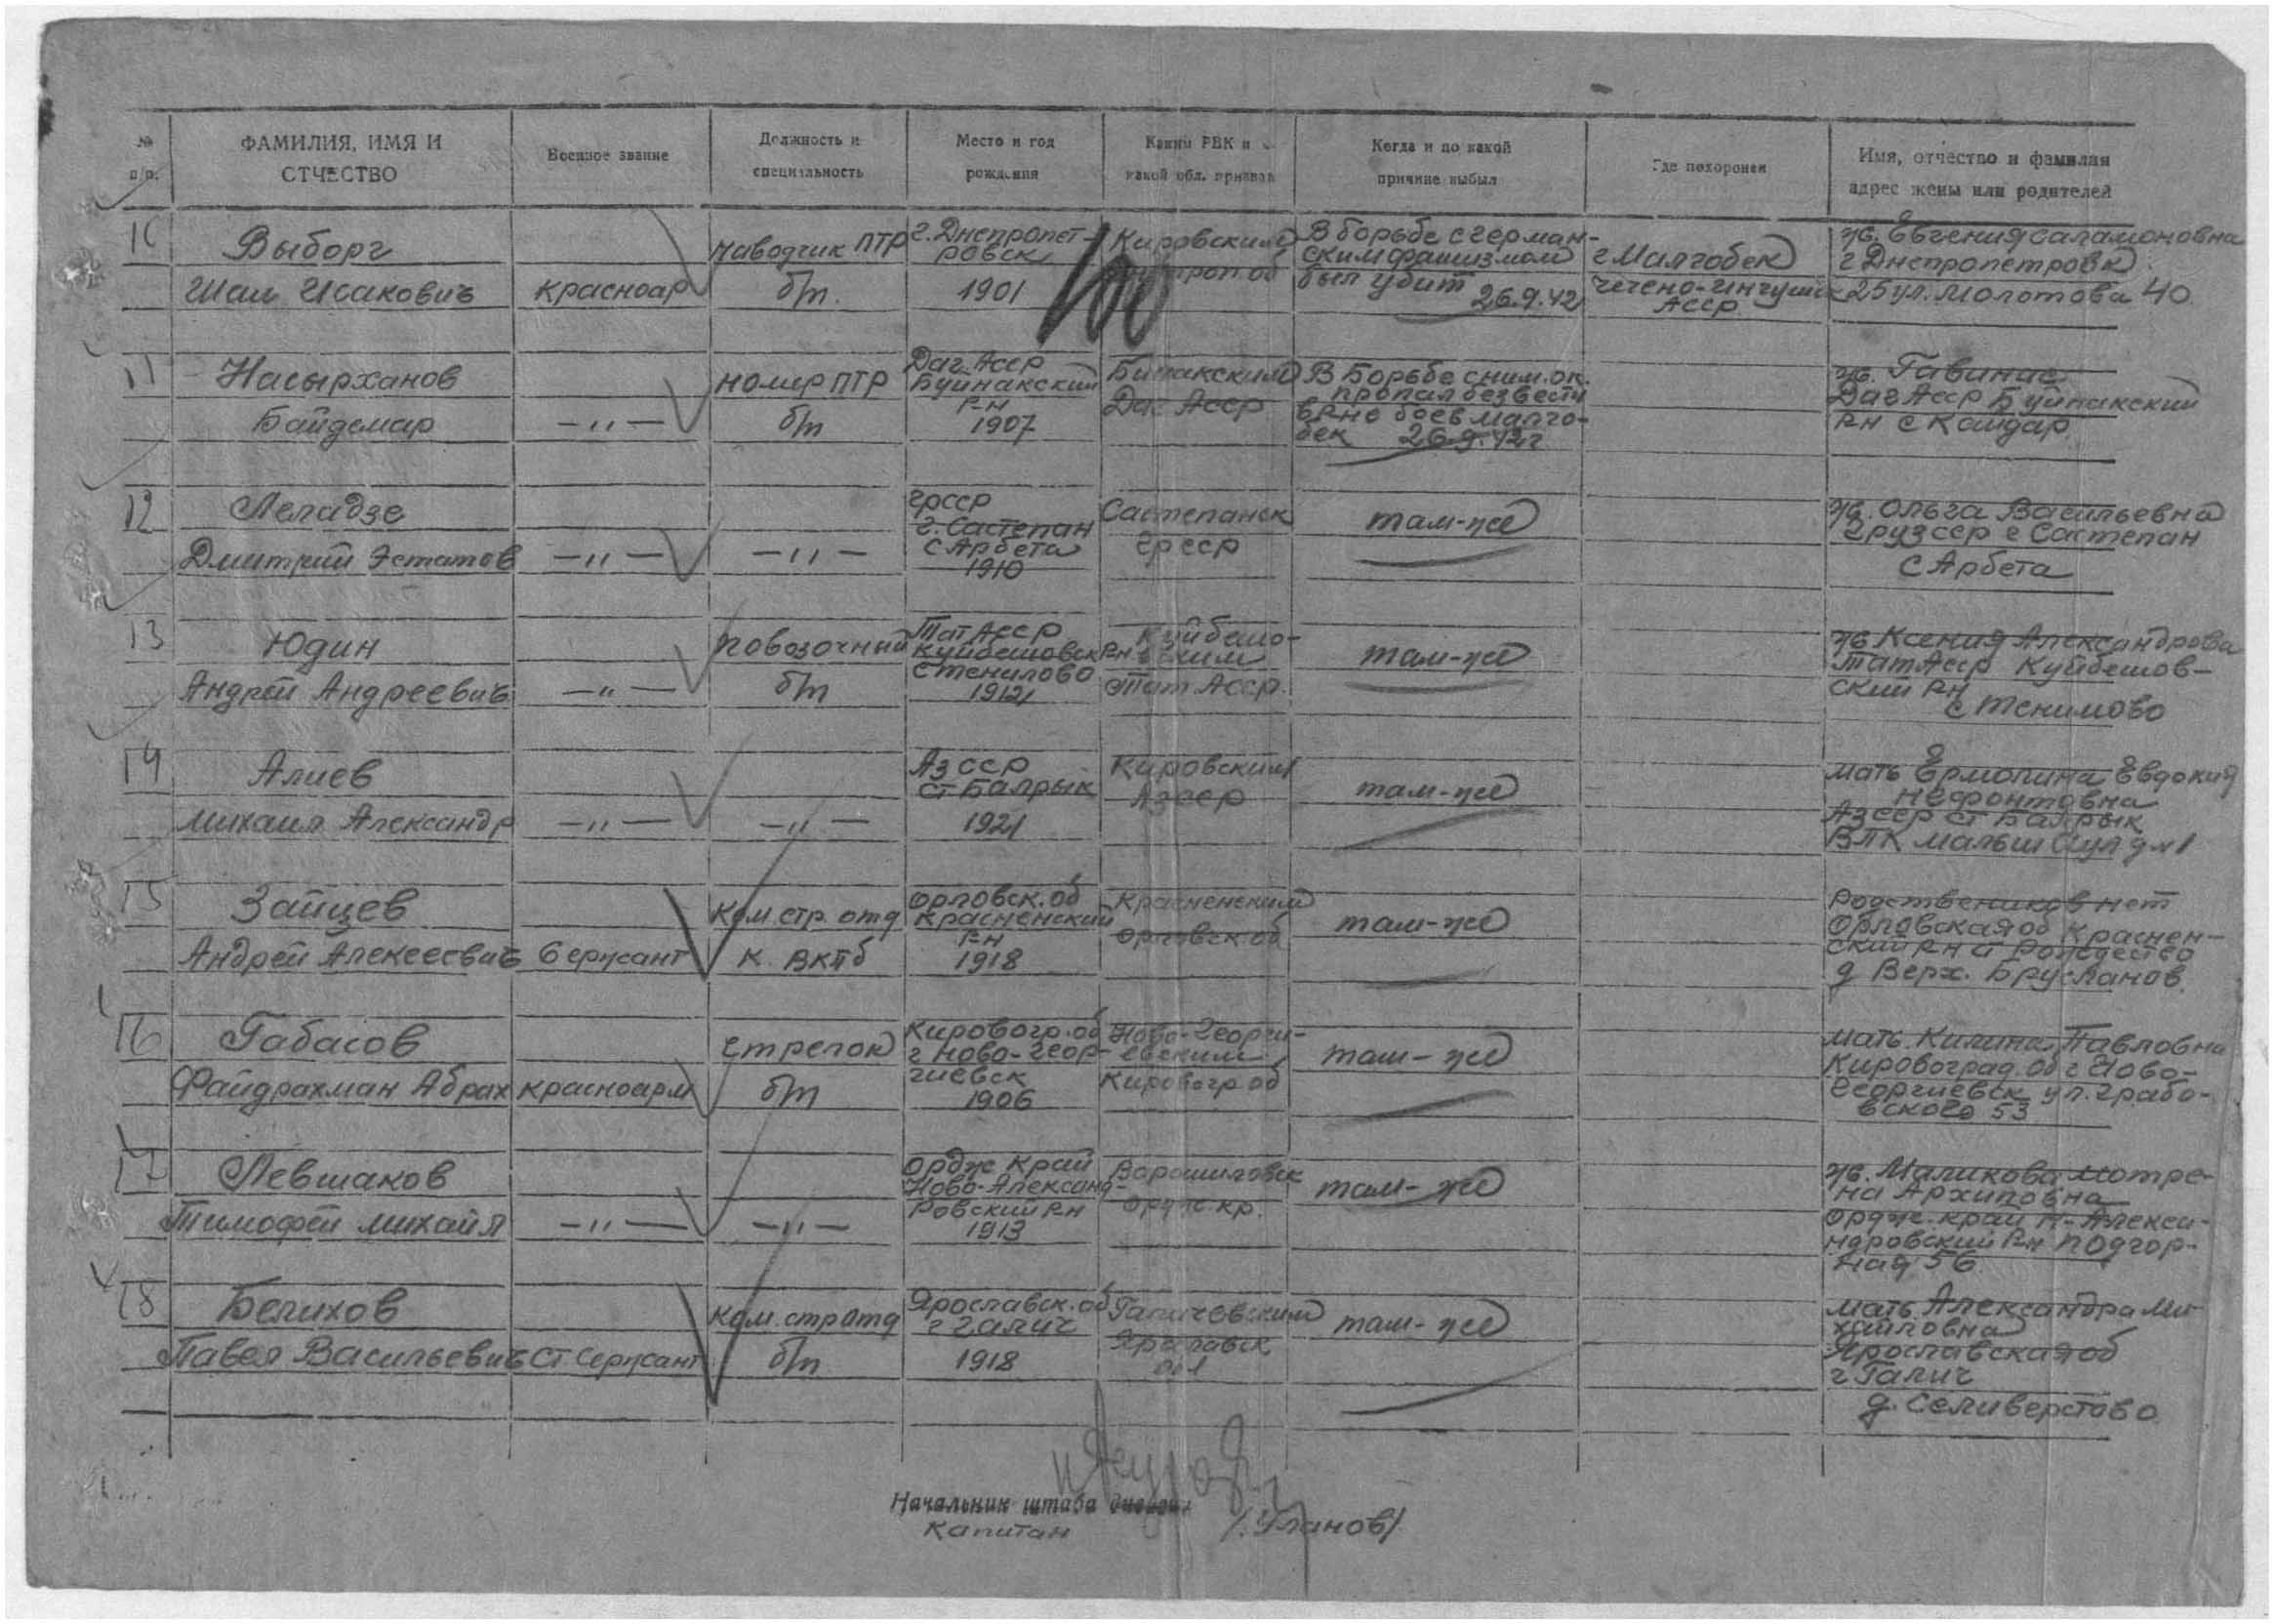 № п/п.
ФАМИЛИЯ, ИМЯ И ОТЧЕСТВО
Военное звание
Должность и специальность
Место и год рождения
Каким РВК и какой обл. призван
Когда и по какой причине выбыл
Где похоронен
Имя, отчество и фамилия адрес жены или родителей
10
Выборг
Шал Исакович
красноар
наводчик ПТР
б/п.
г. Днепропет-
ровск
1901
Кировским
В борьбе с герман-
ским фашизмом
был убит
26.9.42
г Малгобек
Чечено-Ингуш
АССР
ж. Евгения Саламоновна
г Днепропетровк
25 ул. Молотова 40
11
Насырханов
Байдемар
—"—
номер ПТР
б/п
Даг АССР
Буйнакский
Р-н
1907
Бинакским
Даг АССР
В Борьбе с ним. ок.
пропал без вести
в Р-не боев малго-
бек 26.9.42г
ж. Гавинас
Даг Асср Буйнакский
Р-н с Кандар
12
Леладзе
Дмитрий Эстатов
—"—
—"—
грсср
г. Састепан
с Арбета
1910
Састепанск
гр сср
там-же
ж. Ольга Васильевна
Груз сср г Састепан
с Арбета
13
Юдин
Андрей Андреевич
—"—
повозочный
б/п
Тат Асср
Куйбешовск Р-н
с Тенилово
1912
Куйбешо-
вским
Тат Асср.
там-же
ж Ксения Александрова
Тат Асср Куйбешов-
ский Р-н
с Тенимово
14
Алиев
михаил Александр
—"—
—"—
Аз сср
ст Балрык
1921
Кировским
Азсср
там-же
мать Ермолина Евдокия
нефонтовна
Азсср ст Балрык
15
Зайцев
Андрей Алексеевич
Сержант
Ком. стр. отд
К. ВКПб
орловск. об
красненский
Р-н
1918
Красненским
орловск. об
там-же
Родствеников нет
Орловская об Краснен-
ский Р-н
д Верх. Брусланов.
16
Габасов
Файдрахман Абрах
красноарм
стрелок
б/п
Кировогр. об
г Ново-Геор-
гиевск
1906
Ново-Георги-
евским
Кировогр. об
там-же
мать. Килина Павловна
Кировоград. об г Ново-
Георгиевск ул. Грабо-
вского 53
17
Левшаков
Тимофей михайл
—"—
—"—
Ордж край
Ново-Александ-
Ровский Р-н
1913
Ворошиловск
Ордж. кр.
там-же
ж. Маликова мотре-
на Архиповна
Ордж. край Н-Алекса-
ндровский Р-н подгор-
ная 56
18
Белихов
Павел Васильевич
Ст Сержант
Ком. стр отд
б/п
Ярославск. об
г Галич
1918
Галичевским
Ярославск
обл
там-же
мать Александра Ми-
хайловна
Ярославская об
г Галич
д. Селиверстово
Начальник штаба
Капитан
/Уланов/